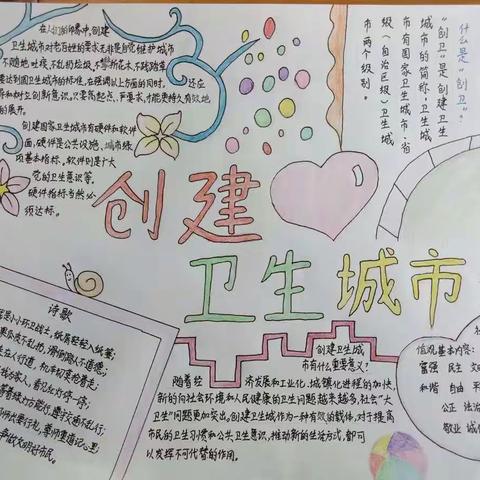 在人们的印象中,创建
卫生城市对老百姓的要求无非是自觉维护城市
不随地吐痰、不乱扔垃圾、不攀折花木、不践踏草
要达到国卫生城市的标准,在强调以上方面的同时,还应
导和树立创新意识。只要高起点、严要求,才能更持久有效地
的展开。
创建国家卫生城市有硬件和软件
面,硬件是公共设施、城市绿
项基本指标。软件则是广大
党的卫生意识等。
硬件指标当然必
须达标。
什么是“创卫”?
“创卫”是创建卫生
城市的简称,卫生城
市有国家卫生城市、省
级(自治区级)卫生城
市两个级别。
创建
卫生城市
诗歌
是小小环卫战士,纸屑轻轻入纸篓;
果皮不乱扔,滑倒别人不道德;
走在人行道,
看见红灯停一停;
尊师重道记心里,
争做文明好市民。
创建卫生城
市有什么重要意义?
随着经济发展和工业化,城镇化进程的加快,
新的向社会环境和人民健康的卫生问题越来越多,社会“大
卫生”问题更加突出。创建卫生城作为一种有效的载体,对于提高
市民的卫生习惯和公共卫生意识,推动新的生活方式,都可
以发挥不可代替的作用。
值观基本内容:
富强 民主 文
和谐 自由 平
公正 法治
敬业 诚信